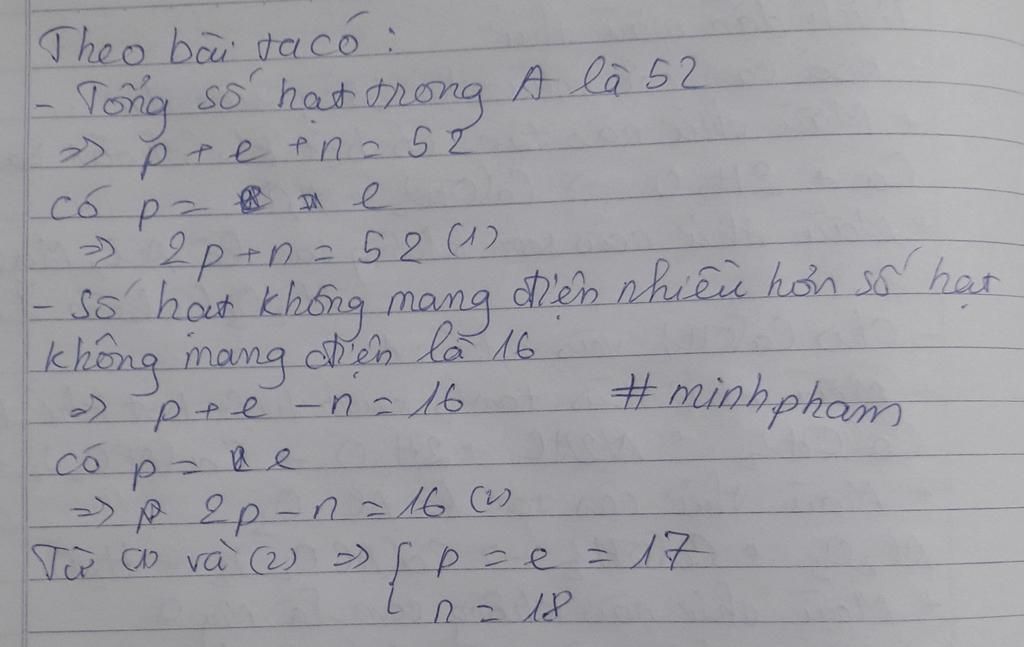 Theo bài ta có :
- Tổng số hạt trong A là 52
=> p + e + n = 52
có p = e
=> 2p + n = 52 (1)
- Số hạt không mang điện nhiều hơn số hạt
không mang điện là 16
=> p + e - n = 16 #minhpham
có p = e
=> 2p - n = 16 (2)
Từ (1) và (2) => { p = e = 17
n = 18